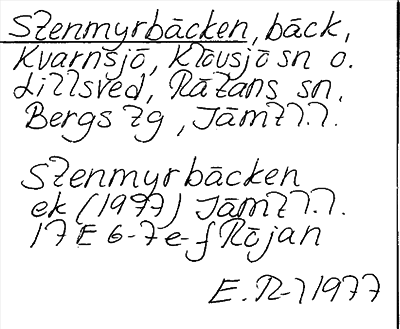 Stenmyrbäcken, bäck,
Kvarnsjö, Klövsjö sn o.
Lillsved, Rätans sn,
Bergs tg, Jämtl.l.
Stenmyrbäcken
ek (1977) Jämtl.l.
17 E 6-7 e-f Röjan
E.R-l 1977